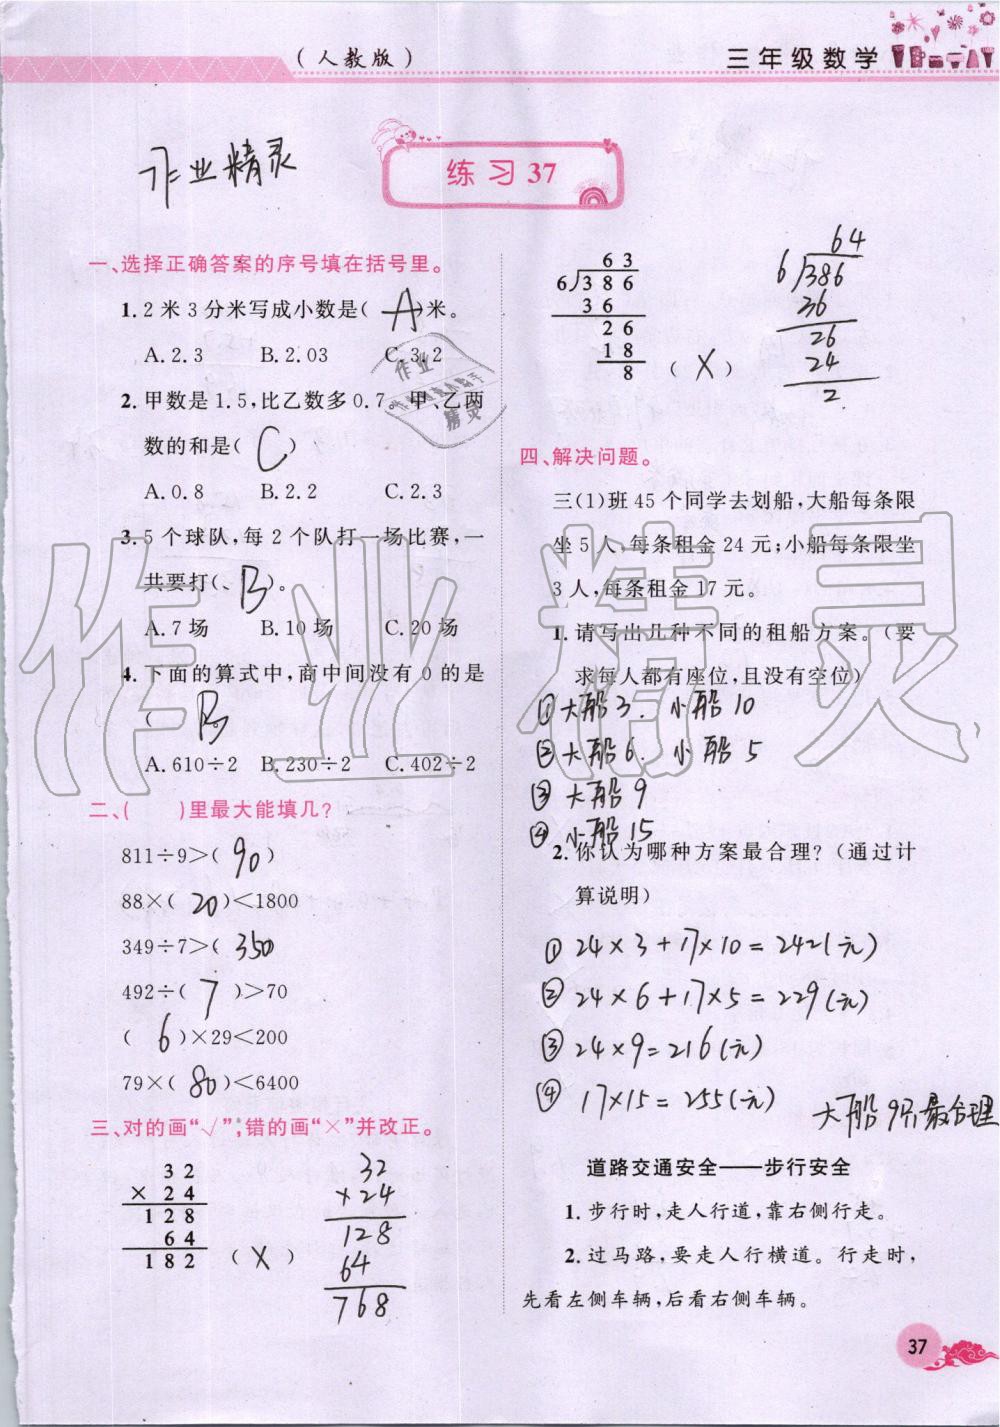 (人教版)
三年级数学
作业精灵
练习37
一、选择正确答案的序号填在括号里。
1.2米3分米写成小数是( A )米。
A.2.3 B.2.03 C.3.2
2.甲数是1.5,比乙数多0.7,甲、乙两
数的和是( C )
A.0.8 B.2.2 C.2.3
3.5个球队,每2个队打一场比赛,一
共要打( B )。
A.7场 B.10场 C.20场
4.下面的算式中,商中间没有0的是
( B
A.610÷2 B.230÷2 C.402÷2
二、( )里最大能填几?
811÷9>( 90 )
88×( 20 )<1800
349÷7>( 350
492÷( 7 )>70
( 6 )×29<200
79×( 80 )<6400
三、对的画“√”,错的画“×”并改正。
32
× 24
128
64
182 ( X )
32
×24
128
64
768
63
6)386
36
26
18
8 ( X )
64
6)386
36
26
24
2
四、解决问题。
三(1)班45个同学去划船,大船每条限
坐5人,每条租金24元;小船每条限坐
3人,每条租金17元。
1.请写出几种不同的租船方案。(要
求每人都有座位,且没有空位)
① 大船3. 小船10
② 大船6. 小船5
③ 大船9
④ 小船15
2.你认为哪种方案最合理?(通过计
算说明)
① 24×3+17×10=242(元)
② 24×6+17×5=229(元)
③ 24×9=216(元)
④ 17×15=255(元)
大船9只最合理
道路交通安全——步行安全
1.步行时,走人行道,靠右侧行走。
2.过马路,要走人行横道。行走时,
先看左侧车辆,后看右侧车辆。
37
作业精灵
作业
精灵